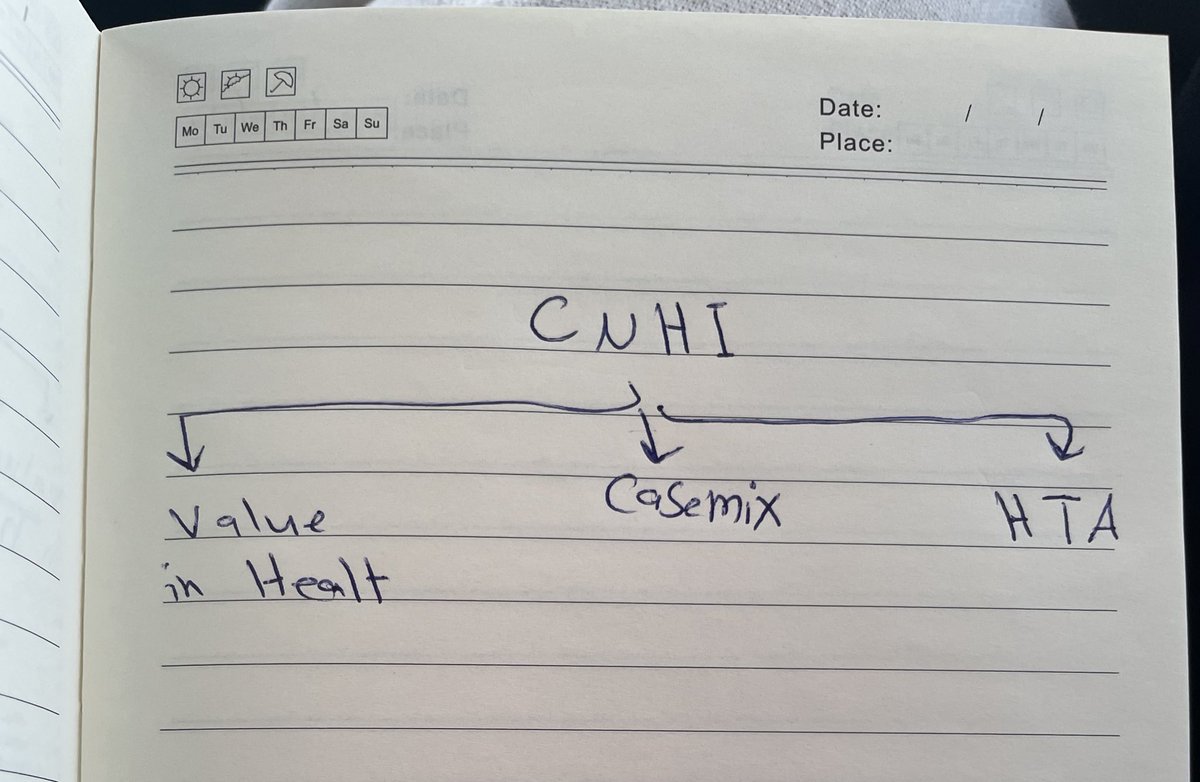 Mo Tu We Th Fr Sa Su
Date: / /
Place:
CNHI
Value
in Healt
Casemix
HTA